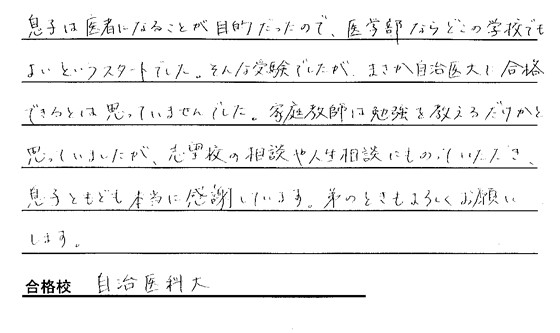 息子は医者になることが目的だったので、医学部ならどこの学校でも
よいというスタートでした。そんな受験でしたが、まさか自治医大に合格
できるとは思っていませんでした。家庭教師は勉強を教えるだけかと
思っていましたが、志望校の相談や人生相談にものっていただき、
息子ともども本当に感謝しています。弟のときもよろしくお願い
します。
合格校 自治医科大